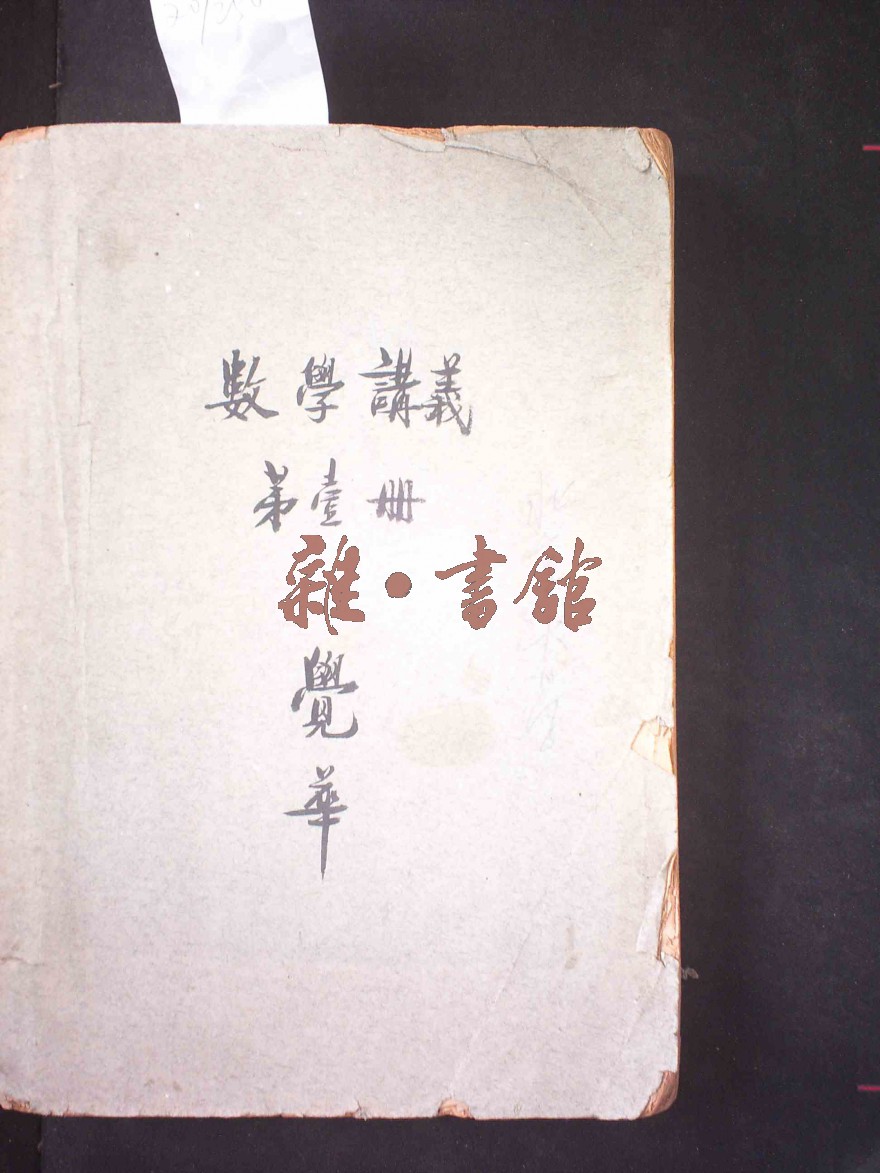 數學講義
第壹冊
雜·書館
覺
華